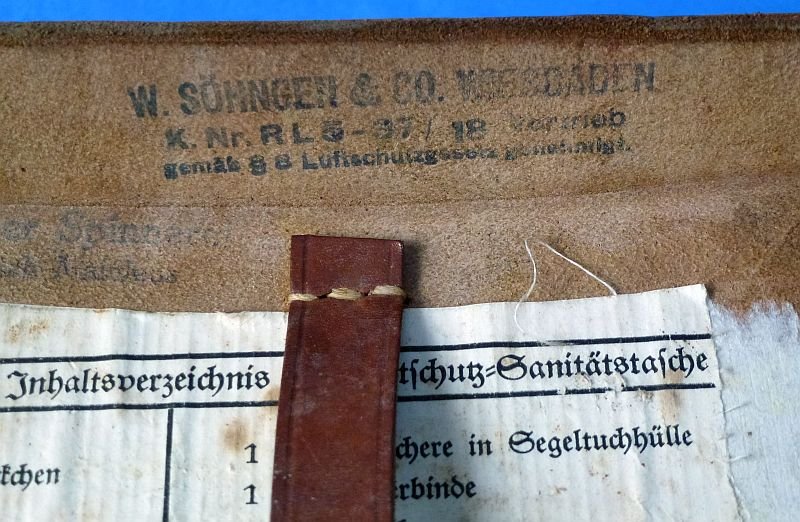 W. SÖHNGEN & CO. WIESBADEN
K. Nr. RL5-37/18 Vertrieb
gemäß § 8 Luftschutzgesetz genehmigt.
er Spinnerei
Inhaltsverzeichnis tschutz=Sanitätstasche
1 chere in Segeltuchhülle
kchen
1 rbinde